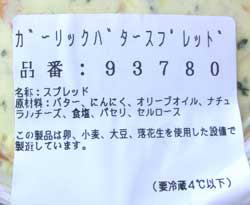 ガーリックバタースプレッド
品番:93780
名称:スプレッド
原材料:バター、にんにく、オリーブオイル、ナチュ
ラルチーズ、食塩、パセリ、セルロース
この製品は卵、小麦、大豆、落花生を使用した設備で
製造しています。
(要冷蔵4℃以下)